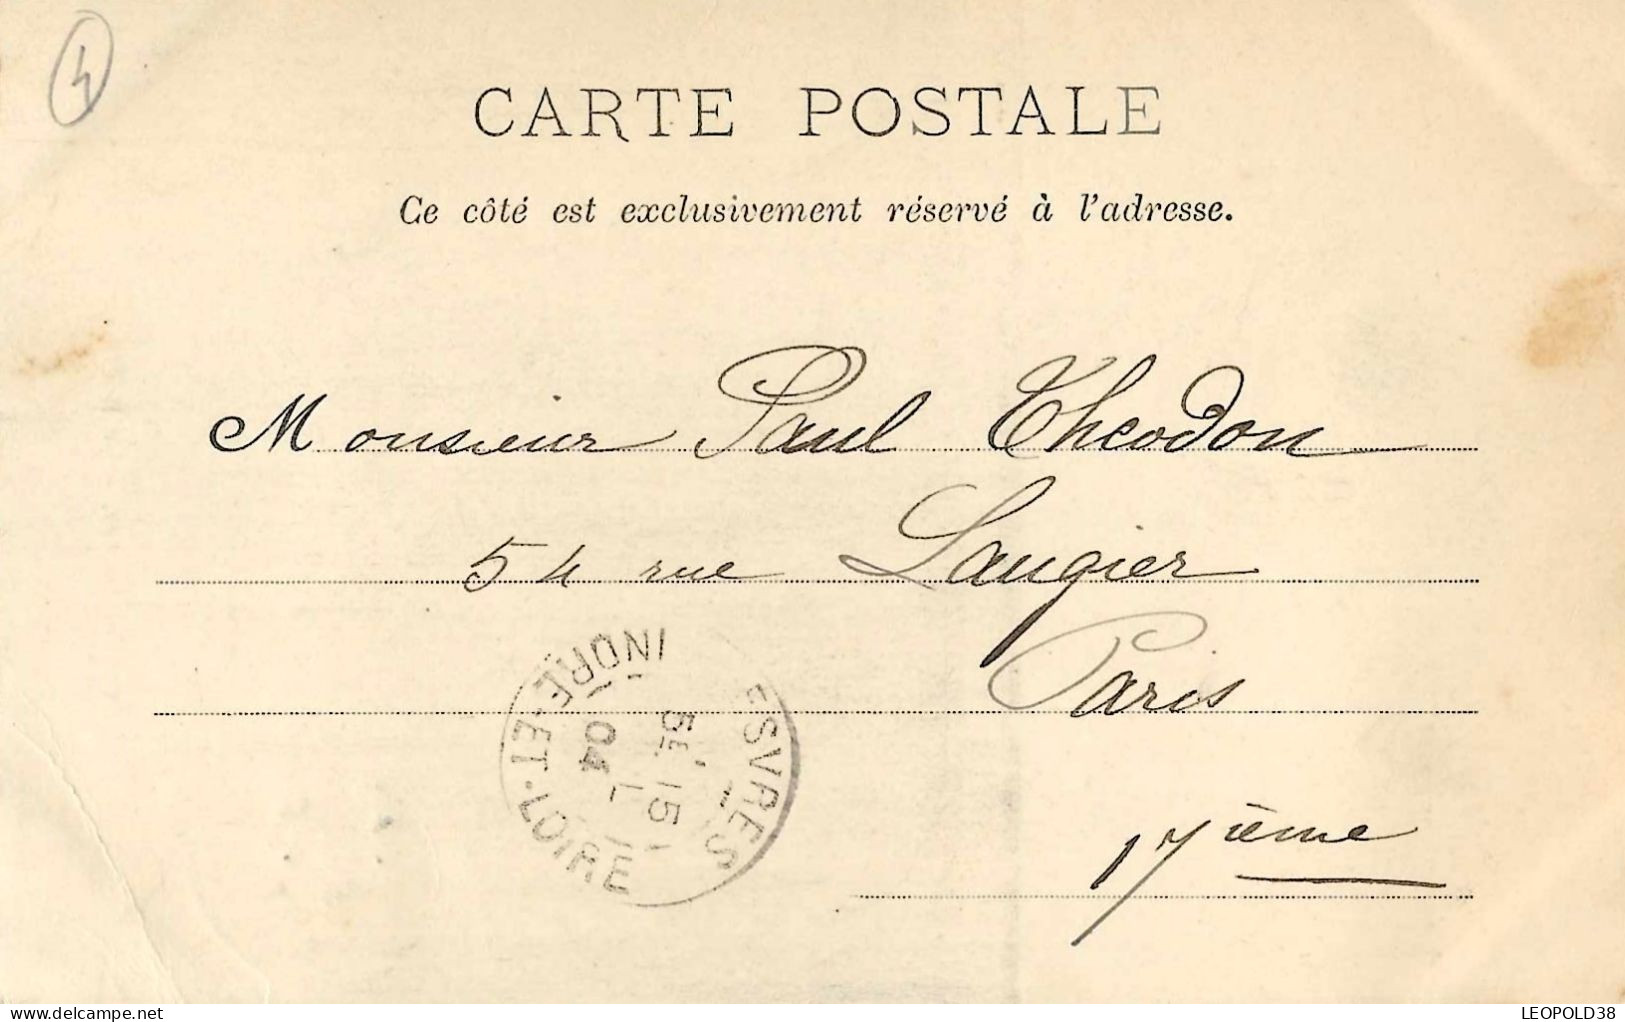 4
CARTE POSTALE
Ce côté est exclusivement réservé à l'adresse.
Monsieur Paul Theodon
54 rue Laugier
Paris
17ième
ESVRES
INDRE-ET-LOIRE
15
04
www.delcampe.net
LEOPOLD38